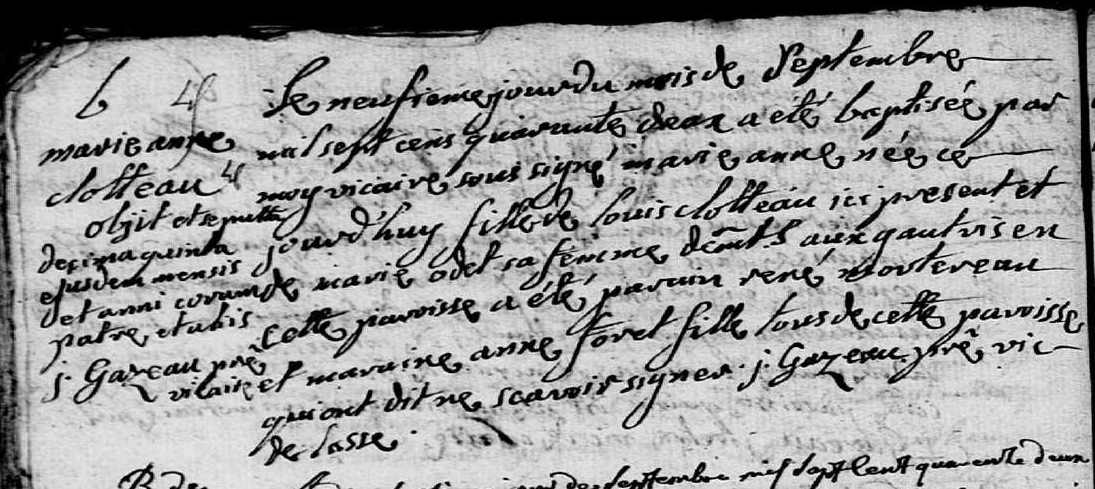 b
marie anne
clotteau
obijt et sepulta
decima quinta
ejusdem mensis
et anni coram
patre et aliis
j. Gazeau prê
vicaire
Le neufieme jour du mois de Septembre
mil sept cens quarante deux a eté baptisée par
moy vicaire sous signé marie anne née ce
jourd'huy fille de louis clotteau ici present et
de marie odet sa femme demts aux gautris en
cette paroisse a eté parain rené mortereau
et maraine anne foret fille tous de cette paroisse
qui ont dit ne scavoir signer. j. Gazeau prê vic
de lasse.
de septembre mil sept cent quarente deux